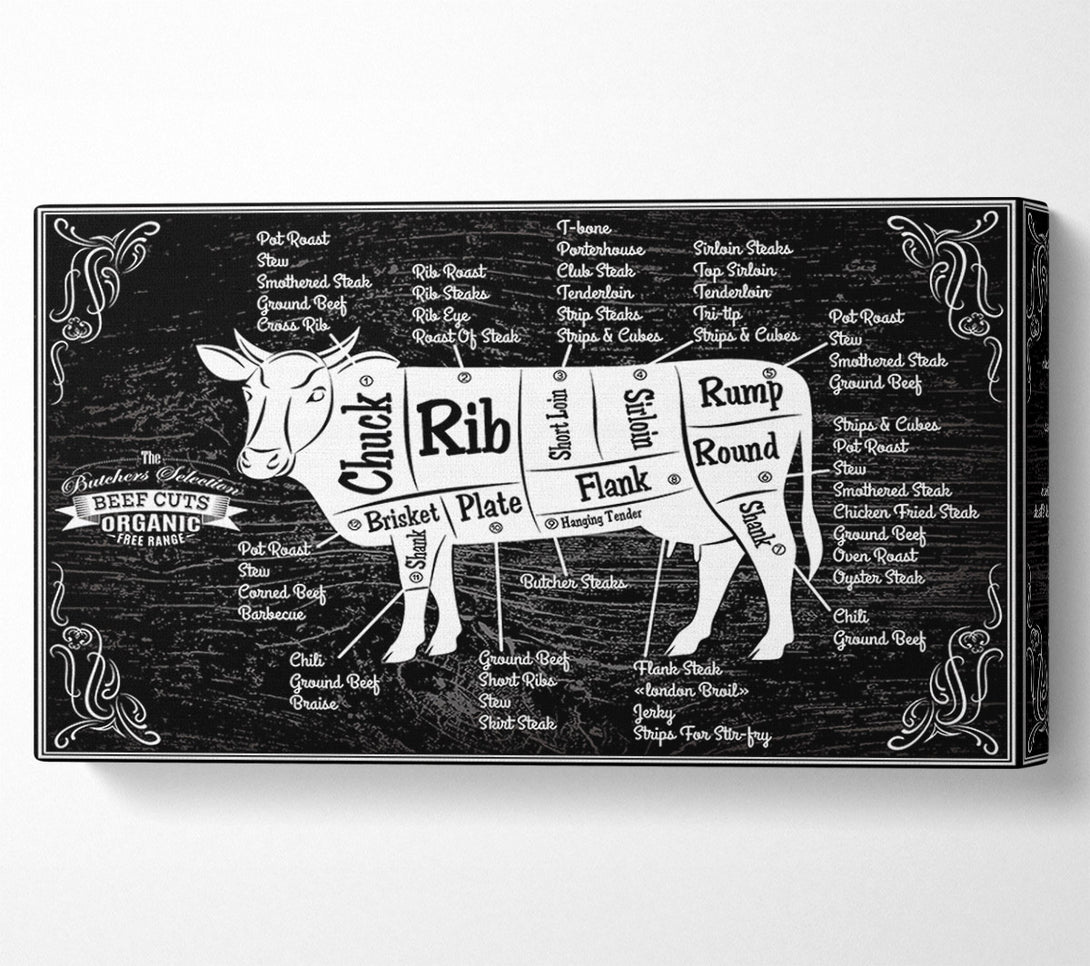 Pot Roast
Stew
Smothered Steak
Ground Beef
Cross Rib
Rib Roast
Rib Steaks
Rib Eye
Roast Of Steak
T-bone
Porterhouse
Club Steak
Tenderloin
Strip Steaks
Strips & Cubes
Sirloin Steaks
Top Sirloin
Tenderloin
Tri-tip
Strips & Cubes
Pot Roast
Stew
Smothered Steak
Ground Beef
Strips & Cubes
Pot Roast
Stew
Smothered Steak
Chicken Fried Steak
Ground Beef
Oven Roast
Oyster Steak
Chili
Ground Beef
1
Chuck
2
Rib
3
Short Loin
4
Sirloin
5
Rump
Round
6
Flank 8
Shank 7
12 Brisket
Plate
10
9 Hanging Tender
Shank
11
The
Butchers Selection
BEEF CUTS
ORGANIC
FREE RANGE
Pot Roast
Stew
Corned Beef
Barbecue
Chili
Ground Beef
Braise
Butcher Steaks
Ground Beef
Short Ribs
Stew
Skirt Steak
Flank Steak
«london Broil»
Jerky
Strips For Stir-fry